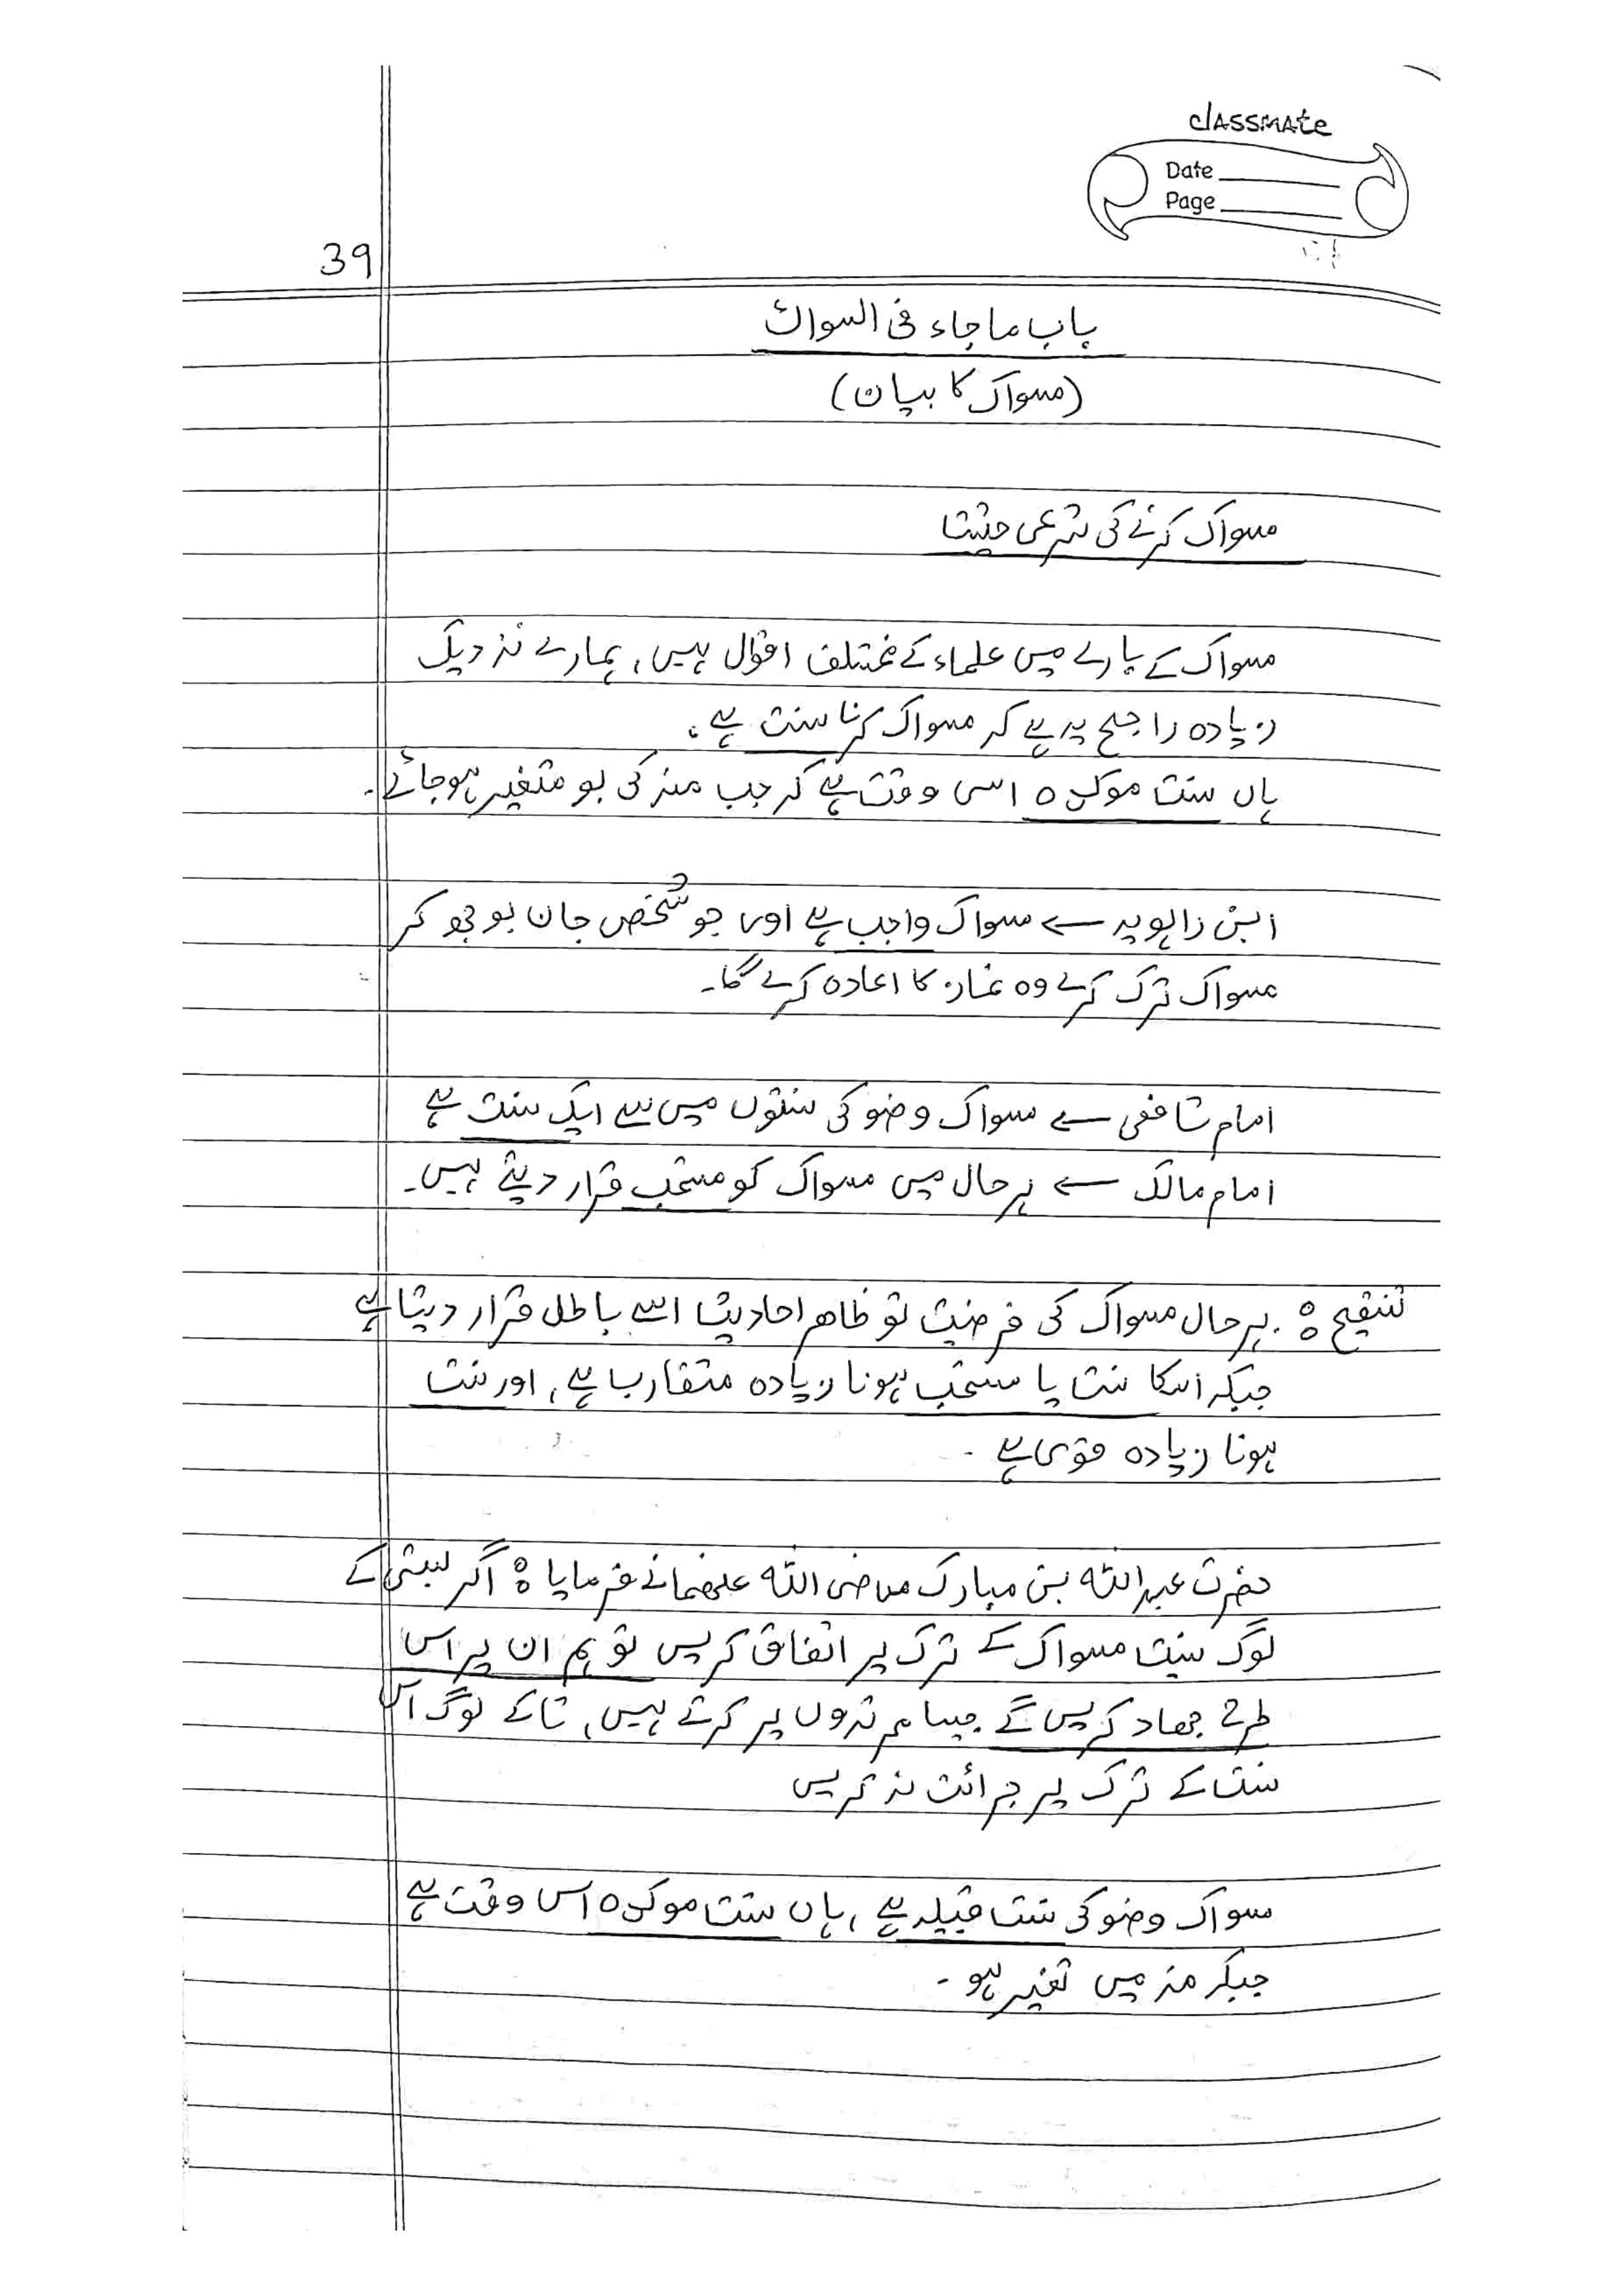 classmate
Date
Page
39
باب ما جاء فی السواک
(مسواک کا بیان)
مسواک کرنے کی شرعی حیثیت
مسواک کے بارے میں علماء کے مختلف اقوال ہیں، ہمارے نزدیک
زیادہ راجح یہ ہے کہ مسواک کرنا سنت ہے،
ہاں سنت موکدہ اسی وقت ہے کہ جب منہ کی بو متغیر ہو جائے۔
ابن راہویہ ← مسواک واجب ہے اور جو شخص جان بوجھ کر
مسواک ترک کرے وہ نماز کا اعادہ کرے گا۔
امام شافعی ← مسواک وضو کی سنتوں میں سے ایک سنت ہے
امام مالک ← ہر حال میں مسواک کو مستحب قرار دیتے ہیں۔
تنقیح : بہر حال مسواک کی فرضیت تو ظاہر احادیث اسے باطل قرار دیتا ہے
جبکہ اسکا سنت یا مستحب ہونا زیادہ متقارب ہے، اور سنت
ہونا زیادہ قوی ہے -
حضرت عبداللہ بن مبارک رضی اللہ عنھما نے فرمایا : اگر بستی کے
لوگ سنیت مسواک کے ترک پر اتفاق کر لیں تو ہم ان پر اس
طرح جھاد کریں گے جیسا ہم مرتدوں پر کرتے ہیں، تاکے لوگ اس
سنت کے ترک پر جرائت نہ کریں
مسواک وضو کی سنت قبلیہ ہے، ہاں سنت موکدہ اس وقت ہے
جبکہ منہ میں تغیر ہو -